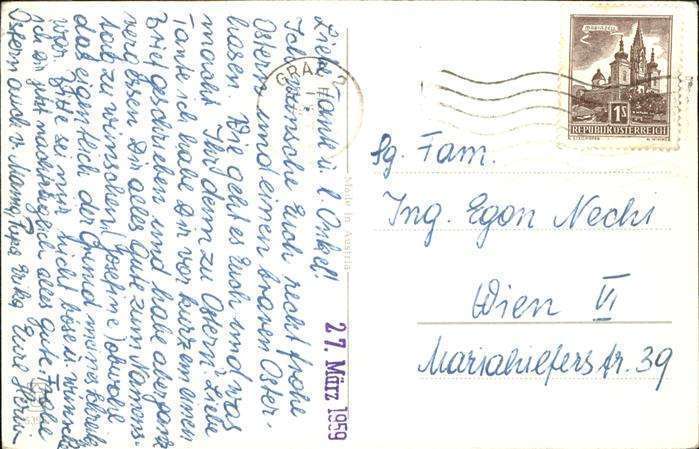 Liebe Tante u. l. Onkel!
Ich wünsche Euch recht frohe
Ostern und einen braven Oster-
hasen. Wie geht es Euch und was
macht Ihr denn zu Ostern? Liebe
Tante ich habe Dir vor kurzem einen
Brief geschrieben und habe aber ganz
vergessen Dir alles Gute zum Namens-
tag zu wünschen (Josefine) obwohl
das eigentlich der Grund meines Schreibens
war. Bitte sei mir nicht böse u. wünsche
ich Dir jetzt nachträglich alles gute. Frohe
Ostern auch v. Mama, Papa, Erika Eure
GRAZ 2
Made in Austria
27. März 1959
MARIAZELL
1S
REPUBLIK ÖSTERREICH
Sg. Fam.
Ing. Egon
Wien VI
Mariahilferstr. 39